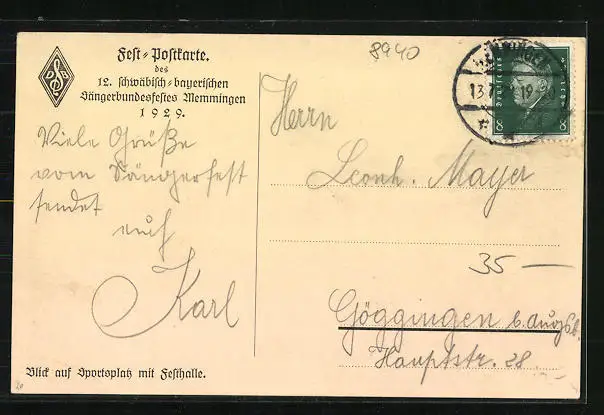 DSB
Fest-Postkarte.
des
12. schwäbisch-bayerischen
Sängerbundesfestes Memmingen
1929.
Viele Grüße
vom Sängerfest
sendet
euch
Karl
Blick auf Sportsplatz mit Festhalle.
8940
MEMMINGEN
13.7. 19-20
Deutsches Reich
8 8
Herrn
Leonh. Mayer
35 —
Göggingen b. Augsb.
Hauptstr. 28